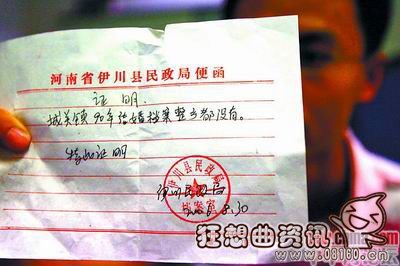 河南省伊川县民政局便函
证明
城关镇90年结婚档案整乡都没有。
特此证明
伊川县民政局
档案室
伊川民政局
8.30
狂想曲资讯
www.08160.cn